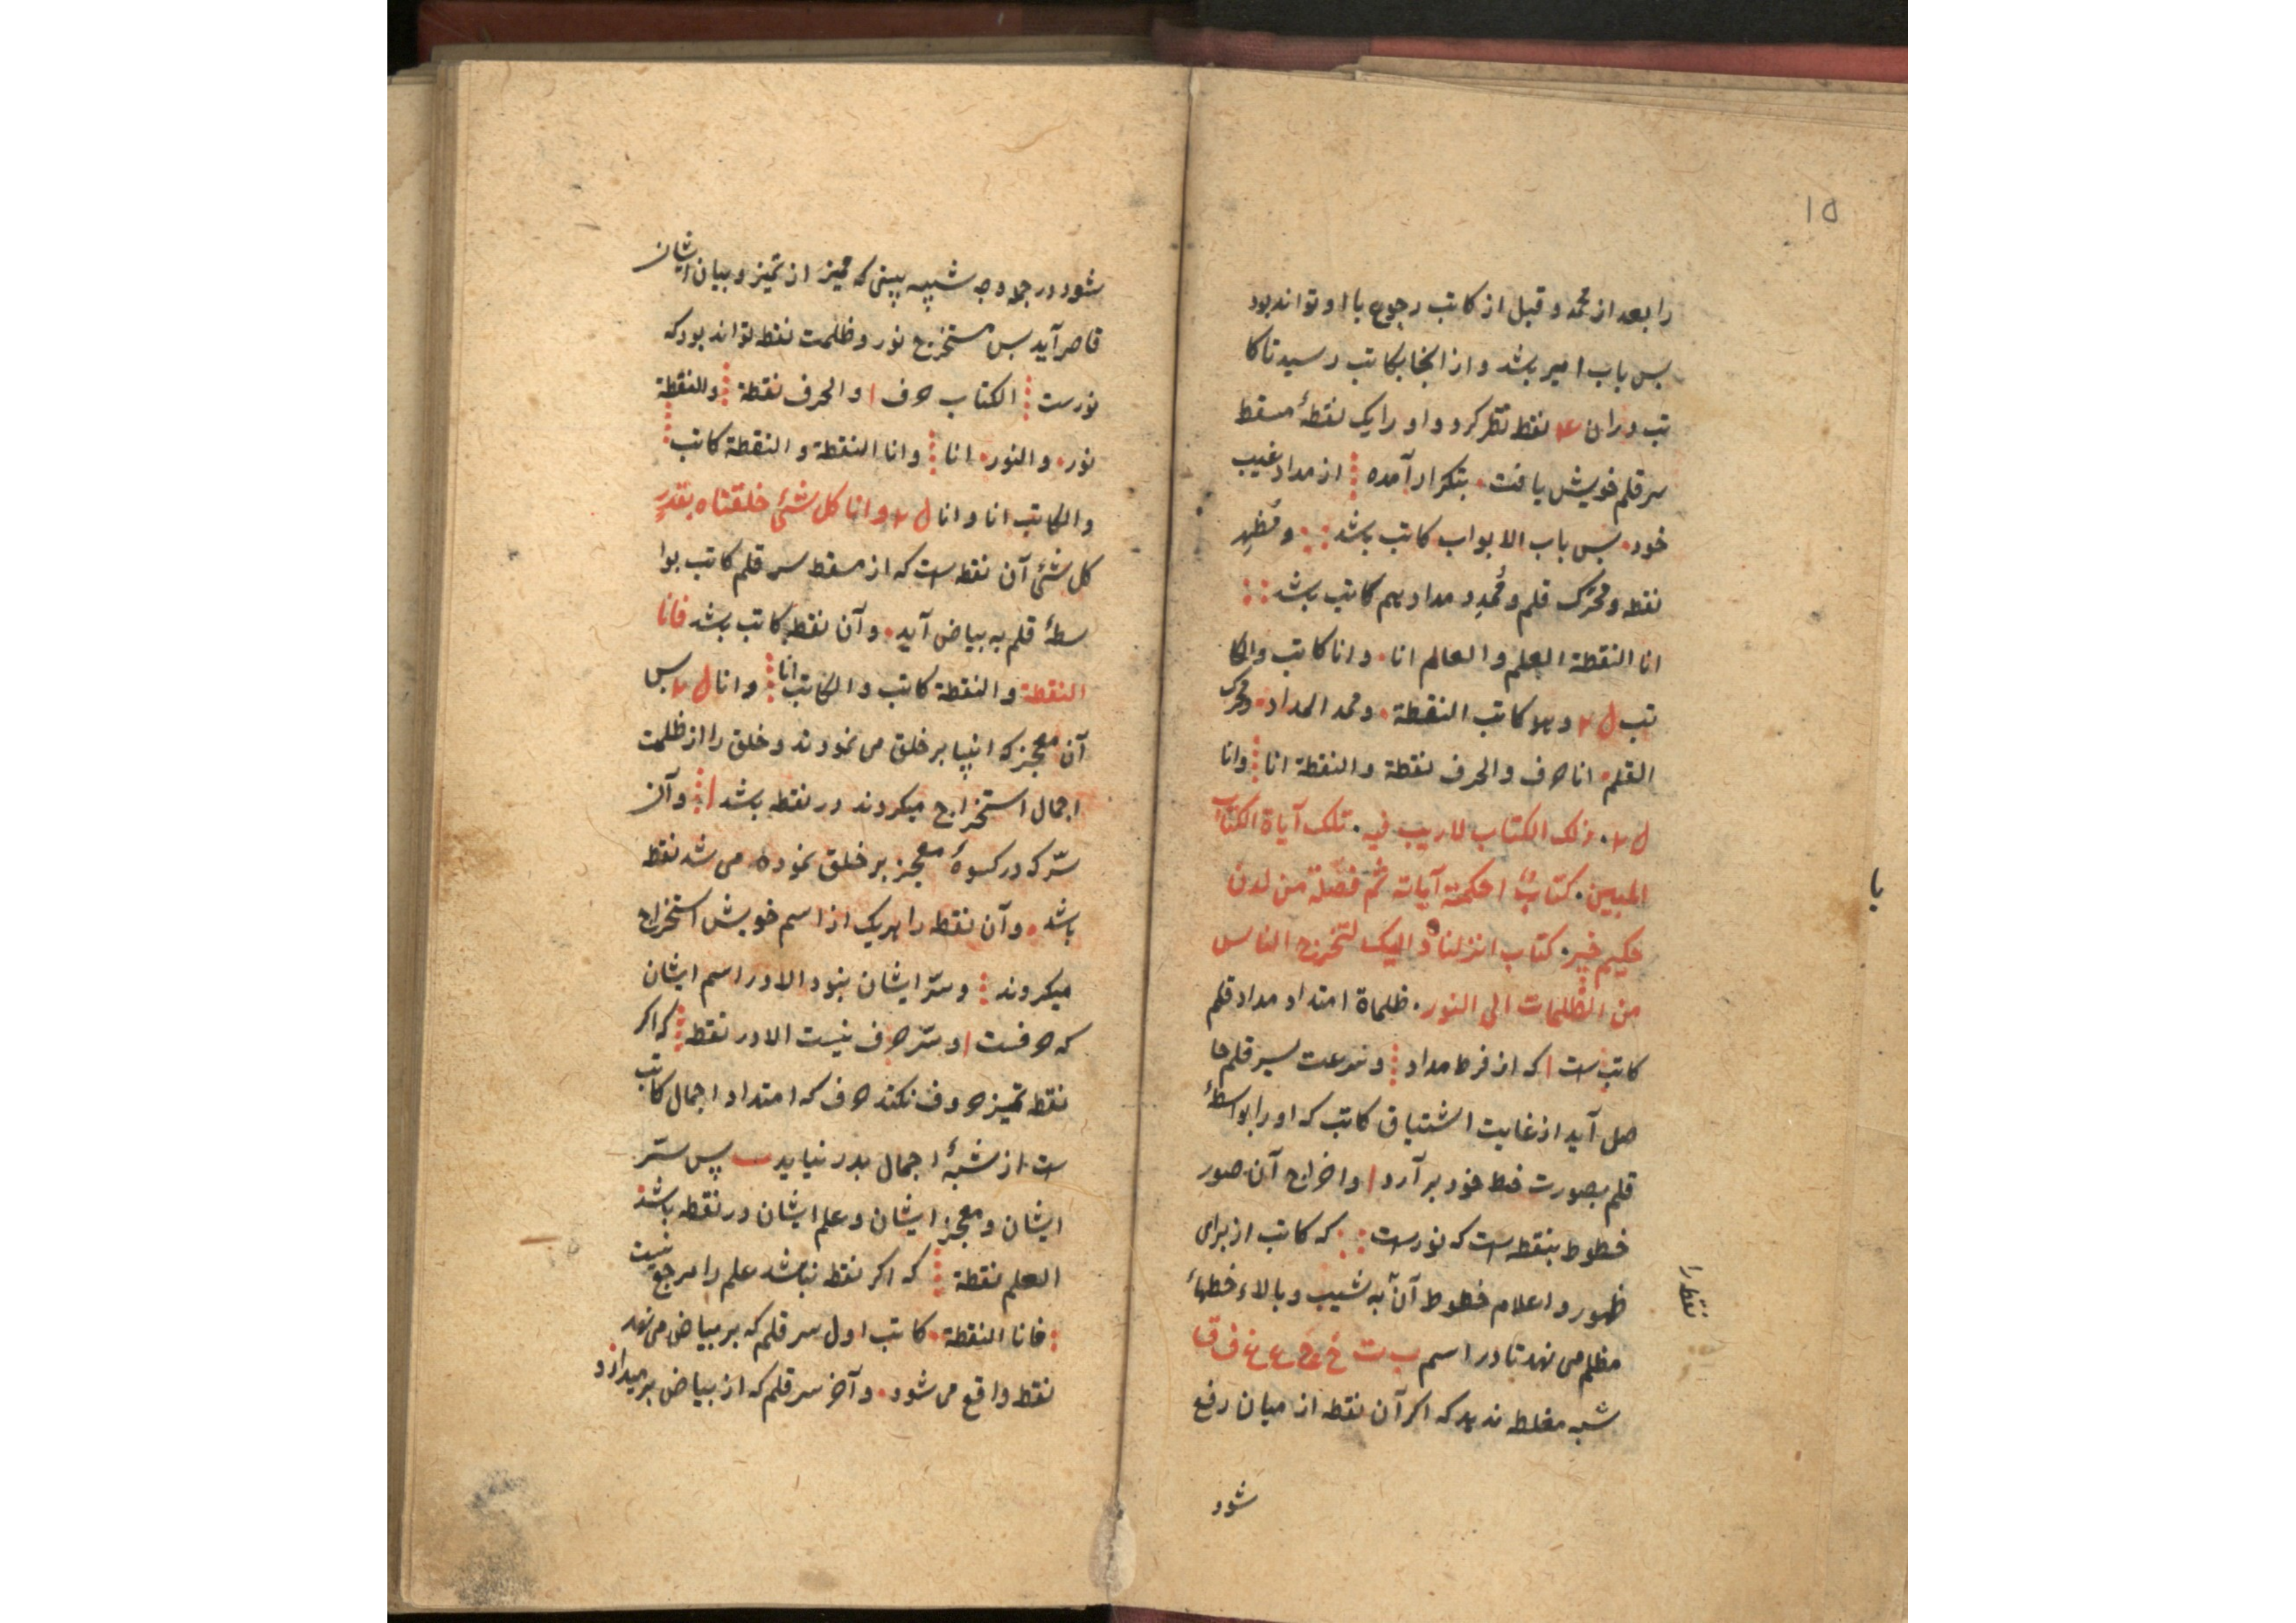 ۱۵
را بعد از محمد و قبل از کاتب رجوع با او تواند بود
بس باب امیر باشد و از انجا بکاتب رسید تا کا
تب در ان نقط نظر کرد و او را یک نقطهٔ مسقط
سر قلم خویش یافت بتکرار آمده از مداد غیب
خود بس باب الابواب کاتب باشد و مُظهِر
نقطه و محرّک قلم و مُمِدِ مداد هم کاتب باشد
انا النقطة العلم و العالم انا و انا کاتب والکا
تب ل۲ و هو کاتب النقطة و ممد المداد و محرک
القلم انا حرف والحرف نقطة والنقطة انا وانا
ل۲ ذلک الکتاب لاریب فیه تلک آیاة الکتاب
المبین کتابٌ احکمت آیاته ثم فصلت من لدن
حکیم خبیر کتاب انزلناه الیک لتخرج الناس
من الظلمات الی النور ظلماة امتداد مداد قلم
کاتب ست که از فرط مداد و سرعت سیر قلم حا
صل آید از غایت اشتیاق کاتب که او را بواسطهٔ
قلم بصورت خط خود بر آرد و اخراج آن صور
خطوط بنقطه ست که نورست که کاتب از برای
ظهور و اعلام خطوط آن به شیب و بالاء خطهاء
مظلم می نهد تا در اسم ب ت
شبه مغلطه ندهد که اکر آن نقطه از میان رفع
شود
با
نقطه را
شود در جمله وجه شبهه بینی که ممیز از تمیز و بیان ایشان
قاصر آید بس مستخرج نور و ظلمت نقطه تواند بود که
نورست الکتاب حرف والحرف نقطة والنقطة
نور والنور انا وانا النقطة والنقطة کاتب
والکاتب انا وانا ل۲ و انا کل شئ خلقناه بقدرٍ
کل شئ آن نقطه ست که از مسقط سر قلم کاتب بوا
سطهٔ قلم به بیاض آید و آن نقطه کاتب باشد فانا
النقطة والنقطة کاتب والکاتب انا وانا ل۲ بس
آن معجز که انبیا بر خلق می نمودند و خلق را از ظلمت
اجمال استخراج میکردند در نقطه باشد و آن
سرّ که در کسوهٔ معجز بر خلق نموده می شد نقطه
باشد و آن نقطه را هر یک از اسم خویش استخراج
میکردند و سرّ ایشان نبود الا در اسم ایشان
که حرفست و سرّ حرف نیست الا در نقطه که اکر
نقطه تمیز حروف نکند حرف که امتداد اجمال کاتب
ست از شبهٔ اجمال بدر نیاید پس سرّ
ایشان و معجز ایشان و علم ایشان در نقطه باشد
العلم نقطة که اکر نقطه نباشد علم را مرجع نیست
فانا النقطة کاتب اول سر قلم که بر بیاض می نهد
نقطه واقع می شود و آخر سر قلم که از بیاض بر میدارد